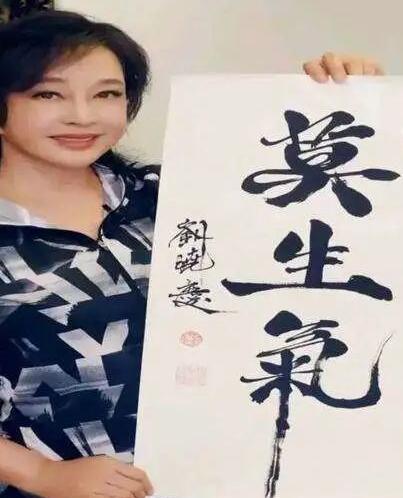 莫生氣
劉曉慶